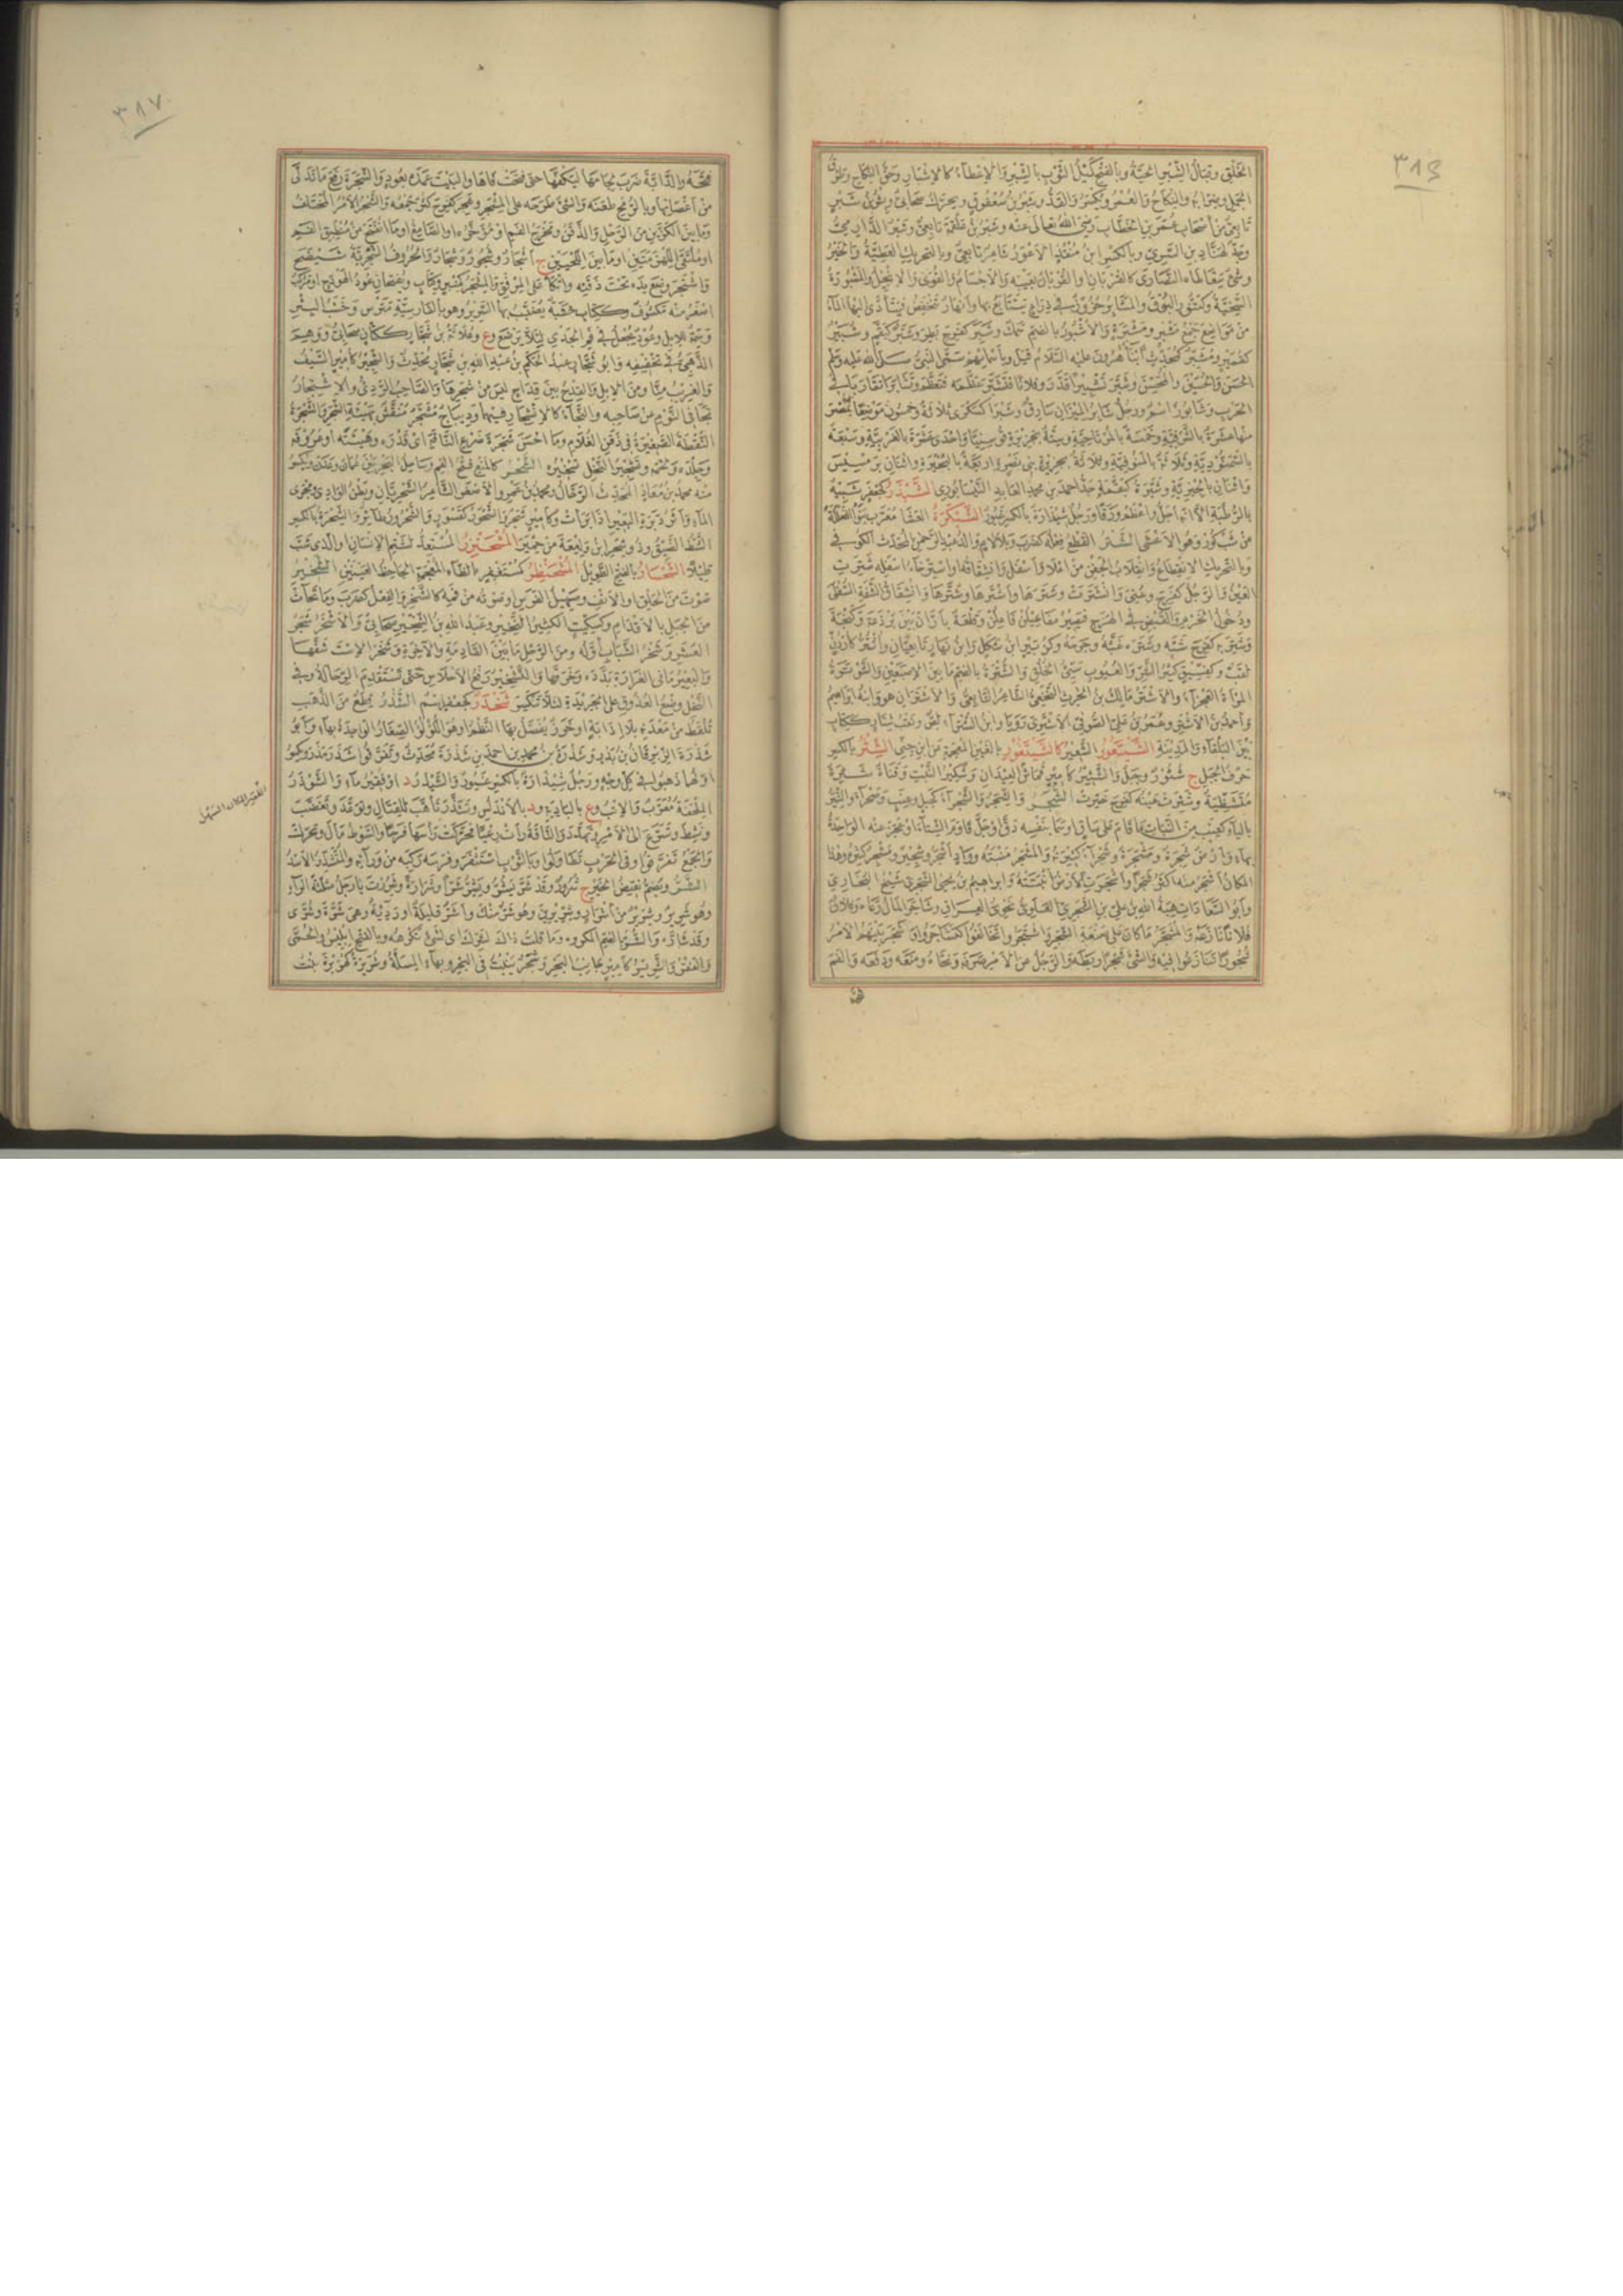 ٣٨٦
الخلق وقبال الشبر الحية وبالفتح كيل الثوب بالشبر والإعطاء كالإشبار وحق النكاح وطرق
الجمل وضرابه والنكاح والعمر ويكسر والقد وشبر بن صعفوق ويحرك صحابي وبشر بن شبر
تابعي من أصحاب عمر بن الخطاب رضي الله تعالى عنه وشبر بن علقمة تابعي وشبر الدارمي
وجد لهناد بن السري وبالكسر ابن منقذ الأعور شاعر تابعي وبالتحريك العطية والخير
وشئ يتعاطاه النصارى كالقربان والقربان بعينه والأجسام والقوى والإنجيل والمشبورة
السخية وكتنور البوق والمشابر حزوز في ذراع يتبايع بها وأنهار تنخفض فيتأدى إليها الماء
من مواضع جمع مشبر ومشبرة والأشبور بالضم سمك وشبر كفرح بطر وشبر كبقم وشبير
كقمير ومشبر كمحدث أبناء هرون عليه السلام قيل وبأسمائهم سمى النبي صلى الله عليه وسلم
الحسن والحسين والمحسن وشبر تشبيرا قدر وفلانا فتشبر عظمه فتعظم وتشابرا تقاربا في
الحرب وشابور اسم ورجل شابر الميزان سارق وشبرا كسكرى ثلاثة وخمسون موضعا بمصر
منها عشرة بالشرقية وخمسة بالمرتاحية وستة بجزيرة قوسينيا واحدى عشرة بالغربية وسبعة
بالسمنودية وثلاثة بالمنوفية وثلاثة بجزيرة بني نصر وأربعة بالبحيرة واثنان برمسيس
واثنان بالجيزية وشبرة كبقمة جد أحمد بن محمد العابد النيسابوري الشبذر كجعفر شبيه
بالرطبة إلا أنه أجل وأعظم ورقا ورجل شبذارة بالكسر غيور الشبكرة العشا معرب بنوا الفعللة
من شب كور وهو الأعشى الشتر القطع فعله كضرب وبلا لام والد عبد الرحمن المحدث الكوفي
وبالتحريك الانقطاع وانقلاب الجفن من أعلى وأسفل وانشقاقه أو استرخاء أسفله شترت
العين والرجل كفرح وعني وانشترت وشترها وأشترها وشترها وانشقاق الشفة السفلى
ودخول الخرم والقبض في الهزج فيصير مفاعيلن فاعلن وقلعة بأران بين برذعة وكنجة
وشتر به كفرح سبه وشتره غته وجرحه وكزبير ابن شكل وابن نهار تابعيان وأشتر كأردن
لقب وكفسيق كثير الشر والعيوب سيئ الخلق والشترة بالضم ما بين الإصبعين والشوترة
المرأة العجزاء والأشتر مالك بن الحرث النخعي الشاعر التابعي والأشتران هو وابنه ابراهيم
وأحمد بن الأشتر وعمر بن علي الصوفي الأشتري رويا وابن الشتر لص ونقب شتار ككتاب
بين البلقاء والمدينة الشيتعور الشعير كالشيتغور بالغين المعجمة عن ابن جني الشثر بالكسر
حرف الجبل ج شثور وجبل والشثير كأمير قماش العيدان وشكير النبت وقناة شثرة
متشظية وشثرت عينه كفرح خثرت الشجر والشجر والشجراء كجبل وعنب وصحراء والشير
بالياء كعنب من النبات ما قام على ساق أو سما بنفسه دق أو جل قاوم الشتاء أو عجز عنه الواحدة
بهاء وأرض شجرة ومشجرة وشجراء كثيرته والمشجر منبته وواد أشجر وشجير ومشجر كثيره وهذا
المكان أشجر منه أكثر شجرا وأشجرت الأرض أنبتته وابراهيم بن يحيى الشجري شيخ البخاري
وأبو السعادات هبة الله بن علي بن الشجري العلوي نحوي العراق وشاجر المال رعاه وفلان
فلانا نازعه والمشجر ما كان على صنعة الشجر واشتجروا تخالفوا كتشاجروا وشجر بينهم الأمر
شجورا تنازعوا فيه والشئ شجرا ربطه والرجل عن الأمر صرفه ونحاه ومنعه ودفعه والفم
٣٨٧
فتحه والدابة ضرب لجامها ليكفها حتى فتحت فاها والبيت عمده بعود والشجرة رفع ما تدلى
من أغصانها وبالرمح طعنه والشئ طرحه على المشجر وشجر كفرح كثر جمعه والشجر الأمر المختلف
وما بين الكرين من الرحل والذقن ومخرج الفم أو مؤخره أو الصامغ أو ما انفتح من منطبق الفم
أو ملتقى اللهزمتين أو ما بين اللحيين ج أشجار وشجور وشجار والحروف الشجرية شضج
واشتجر وضع يده تحت ذقنه واتكأ على المرفق والمشجر كمنبر وكتاب ويفتحان عود الهودج أو مركب
أصغر منه مكشوف وككتاب خشبة يضبب بها السرير وهو بالفارسية مترس وخشب البئر
وسمة للإبل وعود يجعل في فم الجدي لئلا يرضع وع وعلاثة بن شجار ككتان صحابي ووهم
الذهبي في تخفيفه وأبو شجار عبد الحكم بن عبد الله بن شجار محدث والشجير كأمير السيف
والغريب منا ومن الإبل والقدح بين قداح ليس من شجرها والصاحب الردئ والاشتجار
تجافي النوم عن صاحبه والنجاء كالانشجار فيهما وديباج مشجر منقش بهيئة الشجر والشجرة
النقطة الصغيرة في ذقن الغلام وما أحسن شجرة ضرع الناقة أي قدره وهيئته أو عروقه
وجلده ولحمه وتشجير النخل تشخيره الشحر كالمنع فتح الفم وساحل البحر بين عمان وعدن ويكسر
منه محمد بن معاذ المحدث الرحال ومحمد بن عمرو الأصغر الشاعر الشحريان وبطن الوادي ومجرى
الماء وأثر دبرة البعير إذا برأت وكأمير شجر والشحور كقسور والشحرور طائر والشحرة بالكسر
الشط الضيق وذو شحر ابن وليعة من حمير المشحنزر المستعد لشتم الإنسان أو الذي شبّ
قليلا الشحسار بالفتح الطويل المشحنظر كمستغفر بالظاء المعجمة الجاحظ العينين الشخير
صوت من الحلق أو الأنف وصهيل الفرس أو صوته من فمه كالشخر والفعل كضرب وما تحات
من الجبل بالأقدام وكسكيت الكثير الشخير وعبد الله بن الشخير صحابي والأشخر شجر
العشر وشخر الشباب أوله ومن الرحل ما بين القادمة والآخرة وشخر الاست شقها
والبعير ما في الغرارة بدده وخرقها والتشخير رفع الأحلاس حتى تستقدم الرحالة وفي
النخل وضع العذوق على الجريدة لئلا تنكسر شخدر كجعفر اسم الشذر قطع من الذهب
تلقط من معدنه بلا إذابة أو خرز يفصل بها النظم أو هو اللؤلؤ الصغار الواحدة بهاء وأبو
شذرة الزبرقان بن بدر وشذرة بن محمد بن أحمد بن شذرة محدث وتفرقوا شذر مذر ويكسر
أولهما ذهبوا في كل وجه ورجل شيذارة بالكسر غيور والشيذر د أو فقير ماء والشوذر
الملحفة معرب والإتب وع بالبادية ود بالأندلس وتشذر تأهب للقتال وتوعد وتغضب
ونشط وتسرع إلى الأمر وتهدد والناقة رأت رعيا فحركت رأسها فرحا والسوط مال وتحرك
والجمع تفرقوا وفي الحرب تطاولوا وبالثوب استثفر وفرسه ركبه من ورائه والمتشذر الأسد
الشر ويضم نقيض الخير ج شرور وقد شر يشر ويشر شرا وشرارة وشررت يا رجل مثلثة الراء
وهو شرير وشرير من أشرار وشريرين وهو شر منك وأشر قليلة أو رديئة وهي شرة وشرى
وقد شاره والشر بالضم المكروه وما قلت ذاك لشرك أي لشئ تكرهه وبالفتح إبليس والحمى
والفقر والشرير كأمير جانب البحر وشجر ينبت في البحر وبهاء المسلة وشريرة كهريرة بنت
الفقير المكان السهل